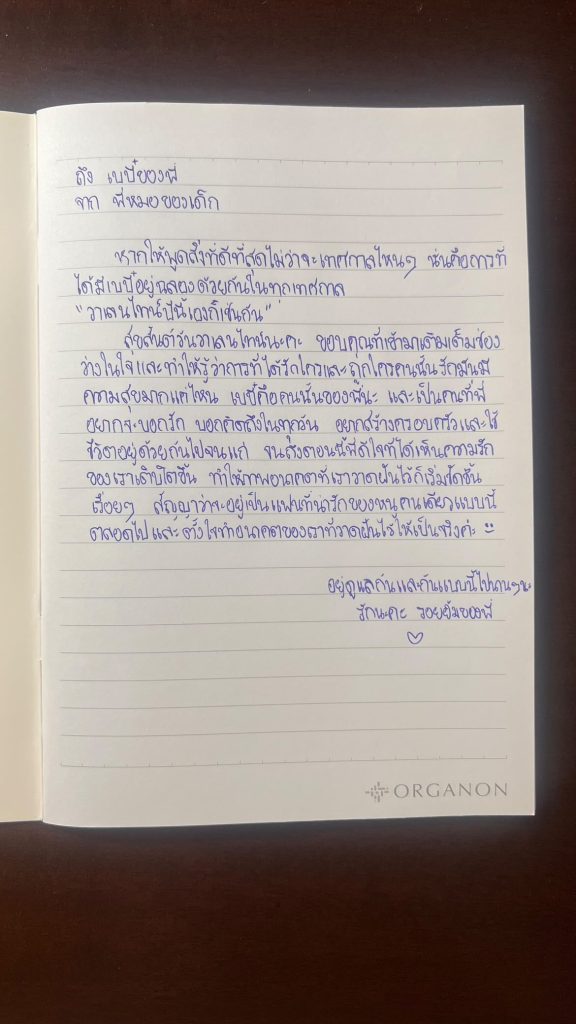 ถึง เบบี๋ของพี่
จาก พี่หมอของเด็ก
หากให้พูดสิ่งที่ดีที่สุดไม่ว่าจะเทศกาลไหนๆ นั่นคือการที่
ได้มีเบบี๋อยู่ฉลองด้วยกันในทุกเทศกาล
"วาเลนไทน์ปีนี้เองก็เช่นกัน"
สุขสันต์วันวาเลนไทน์นะคะ ขอบคุณที่เข้ามาเติมเต็มช่อง
ว่างในใจและทำให้รู้ว่าการที่ได้รักใครและถูกใครคนนั้นรักมันมี
ความสุขมากแค่ไหน เบบี๋คือคนนั้นของพี่นะ และเป็นคนที่พี่
อยากจะบอกรัก บอกคิดถึงในทุกวัน อยากสร้างครอบครัวและใช้
ชีวิตอยู่ด้วยกันไปจนแก่ จนถึงตอนนี้พี่ดีใจที่ได้เห็นความรัก
ของเราเติบโตขึ้น ทำให้ภาพอนาคตที่เราวาดฝันไว้ก็เริ่มชัดขึ้น
เรื่อยๆ สัญญาว่าจะอยู่เป็นแฟนที่น่ารักของหนูคนเดียวแบบนี้
ตลอดไป และตั้งใจทำอนาคตของเราที่วาดฝันไว้ให้เป็นจริงค่ะ
อยู่ดูแลกันและกันแบบนี้ไปนานๆนะ
รักนะคะ รอยยิ้มของพี่
ORGANON